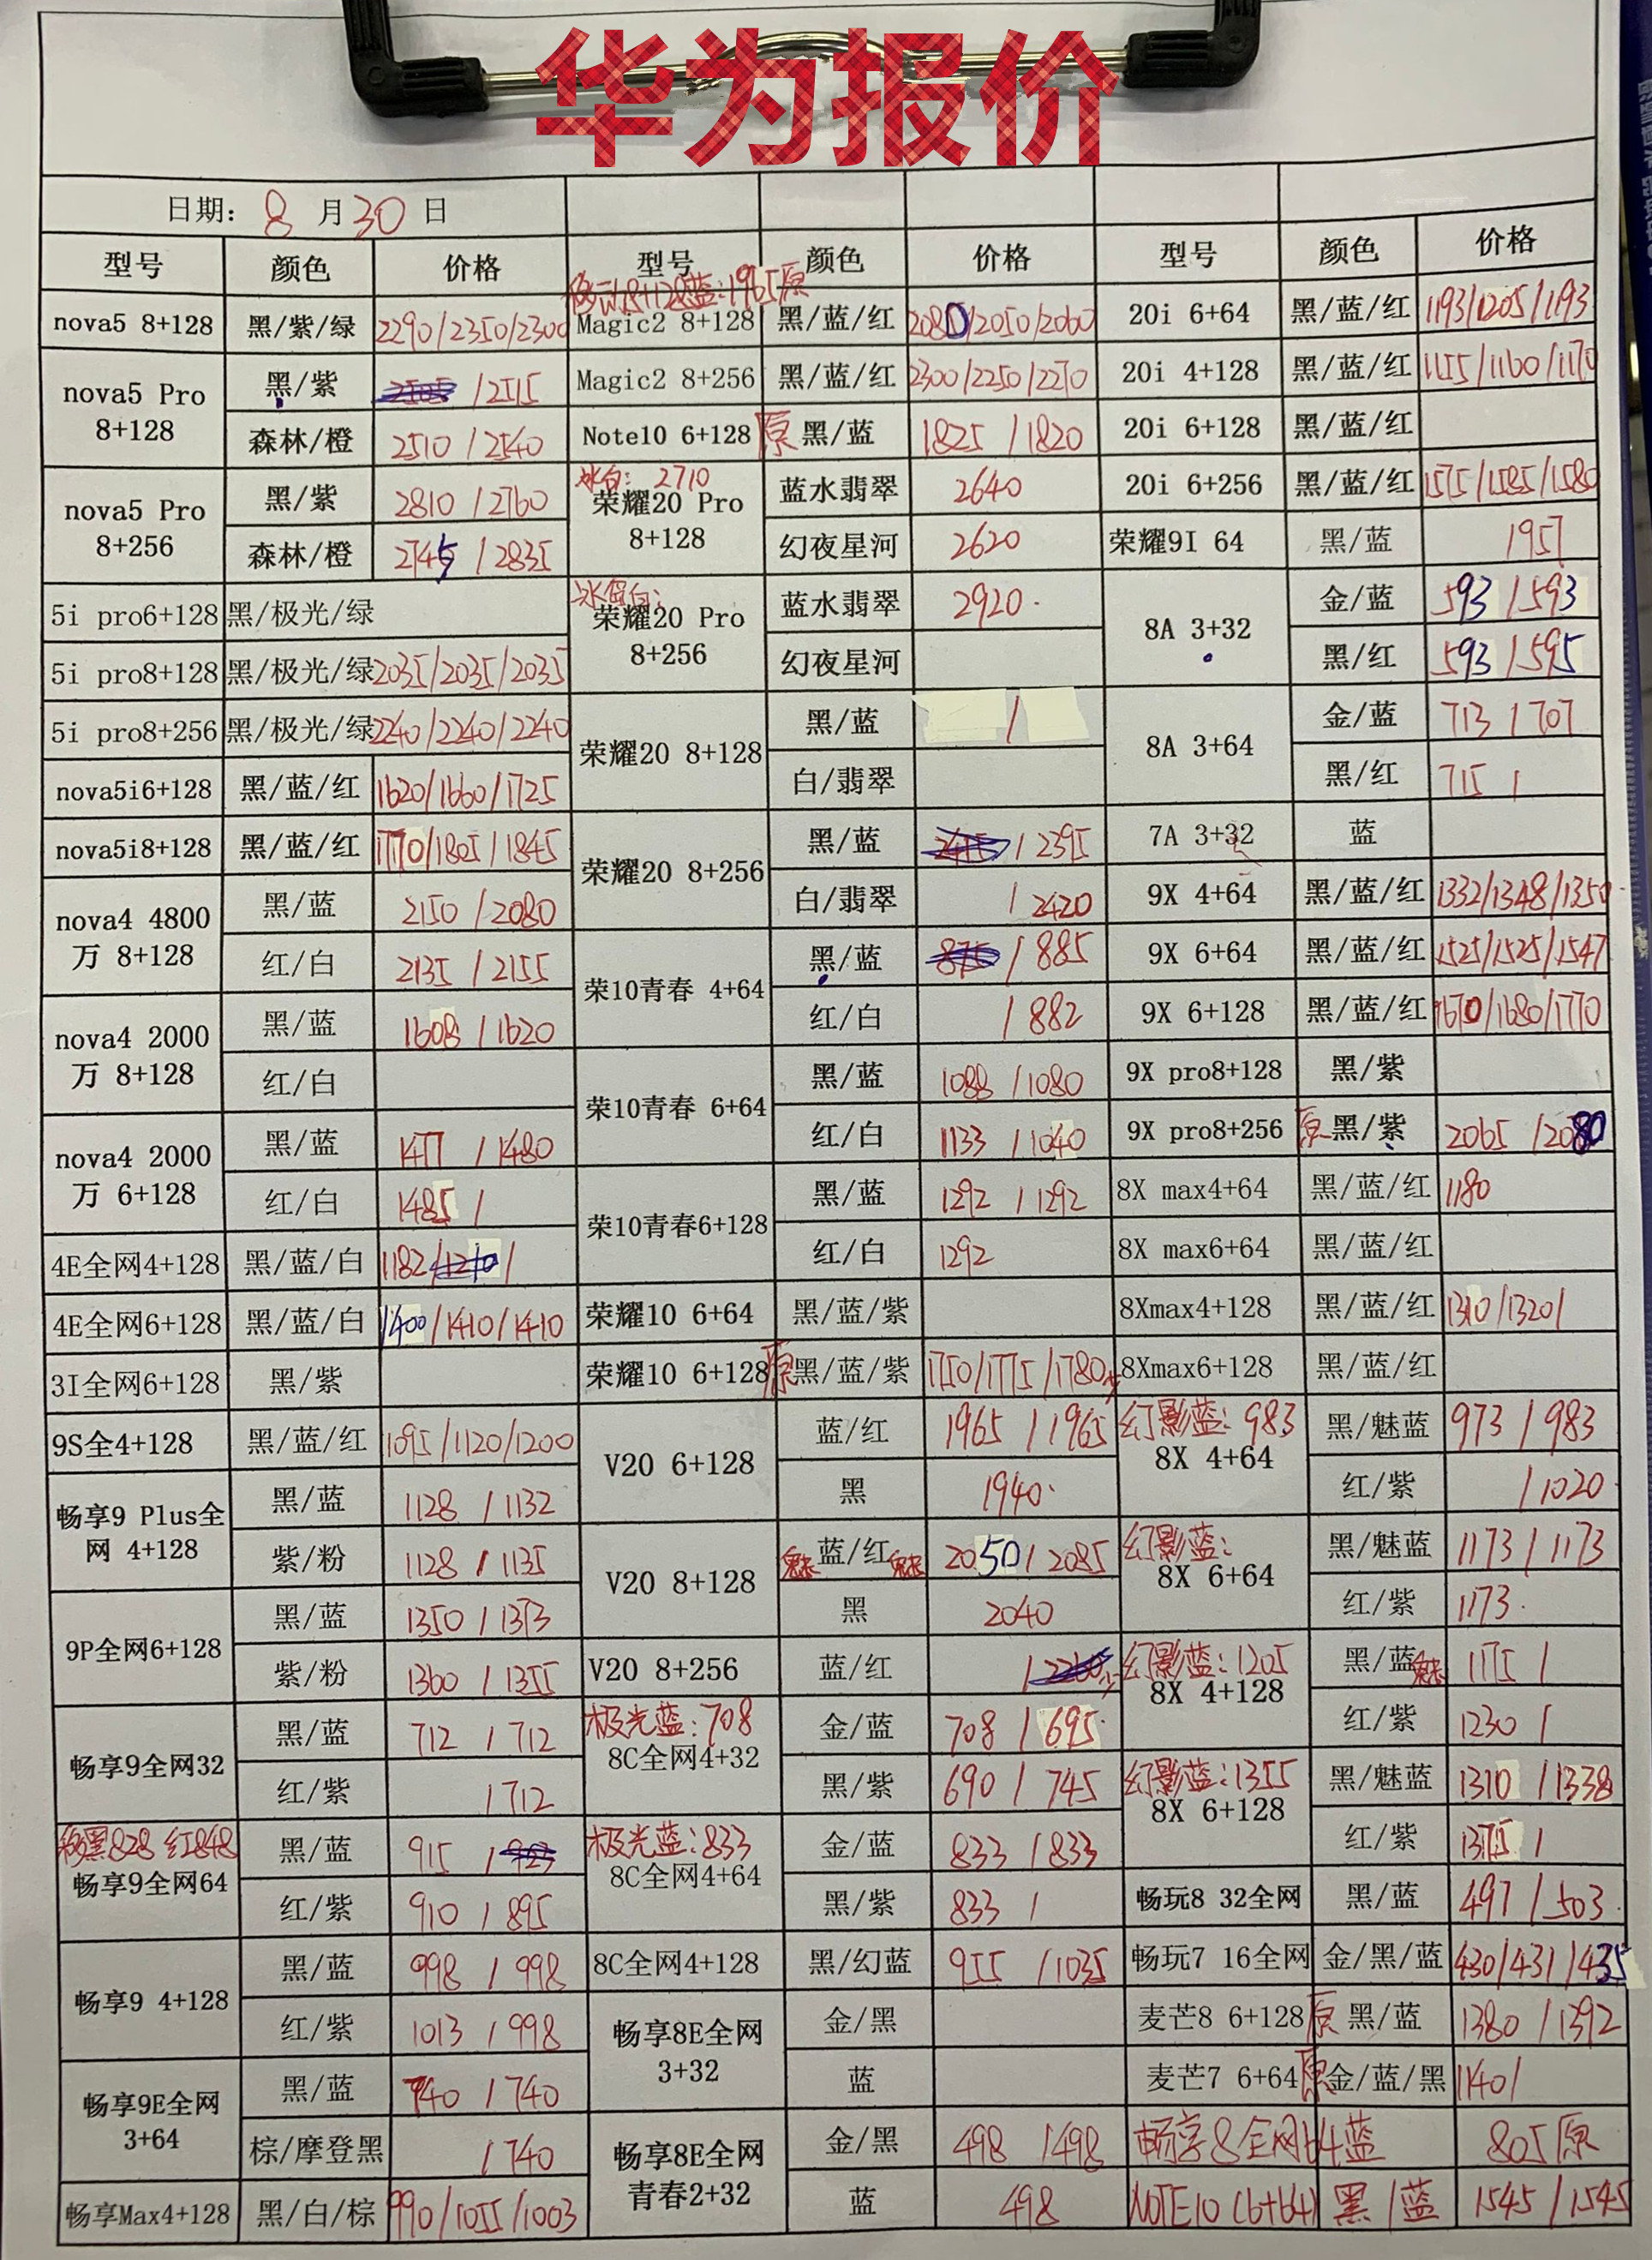 华为报价
日期: 8 月 30 日
型号 颜色 价格 型号 颜色 价格 型号 颜色 价格
移动8+128蓝:1965原
nova5 8+128 黑/紫/绿 2290/2350/2300 Magic2 8+128 黑/蓝/红 2080/2050/2060 20i 6+64 黑/蓝/红 1193/1205/1193
nova5 Pro 8+128 黑/紫 /2515 Magic2 8+256 黑/蓝/红 2300/2250/2270 20i 4+128 黑/蓝/红 1155/1160/1170
森林/橙 2510/2540 Note10 6+128 原 黑/蓝 1825/1820 20i 6+128 黑/蓝/红
nova5 Pro 8+256 黑/紫 2810/2760 冰白: 2710 荣耀20 Pro 8+128 蓝水翡翠 2640 20i 6+256 黑/蓝/红 1575/1585/1580
森林/橙 2745/2835 幻夜星河 2620 荣耀9I 64 黑/蓝 1957
5i pro6+128 黑/极光/绿 荣耀20 Pro 8+256 蓝水翡翠 2920 8A 3+32 金/蓝 593/593
5i pro8+128 黑/极光/绿 2035/2035/2035 幻夜星河 黑/红 593/595
5i pro8+256 黑/极光/绿 2240/2240/2240 荣耀20 8+128 黑/蓝 / 8A 3+64 金/蓝 713/707
nova5i6+128 黑/蓝/红 1620/1660/1725 白/翡翠 黑/红 715/
nova5i8+128 黑/蓝/红 1770/1805/1845 荣耀20 8+256 黑/蓝 /2395 7A 3+32 蓝
nova4 4800万 8+128 黑/蓝 2150/2080 白/翡翠 /2420 9X 4+64 黑/蓝/红 1332/1348/1350
红/白 2135/2155 荣10青春 4+64 黑/蓝 875/885 9X 6+64 黑/蓝/红 1525/1525/1547
nova4 2000万 8+128 黑/蓝 1608/1620 红/白 /882 9X 6+128 黑/蓝/红 1670/1680/1770
红/白 荣10青春 6+64 黑/蓝 1088/1080 9X pro8+128 黑/紫
nova4 2000万 6+128 黑/蓝 1477/1480 红/白 1133/1040 9X pro8+256 原 黑/紫 2065/2080
红/白 1485/ 荣10青春6+128 黑/蓝 1292/1292 8X max4+64 黑/蓝/红 1180
4E全网4+128 黑/蓝/白 1182/1210/ 红/白 1292 8X max6+64 黑/蓝/红
4E全网6+128 黑/蓝/白 1400/1410/1410 荣耀10 6+64 黑/蓝/紫 8Xmax4+128 黑/蓝/红 1310/1320/
3I全网6+128 黑/紫 荣耀10 6+128 原 黑/蓝/紫 1750/1775/1780少 8Xmax6+128 黑/蓝/红
9S全4+128 黑/蓝/红 1095/1120/1200 V20 6+128 蓝/红 1965/1965 幻影蓝:983 8X 4+64 黑/魅蓝 973/983
畅享9 Plus全网 4+128 黑/蓝 1128/1132 黑 1940 红/紫 /1020
紫/粉 1128/1135 V20 8+128 魅 蓝/红 魅 2050/2085 幻影蓝: 8X 6+64 黑/魅蓝 1173/1173
9P全网6+128 黑/蓝 1350/1373 黑 2040 红/紫 1173
紫/粉 1360/1355 V20 8+256 蓝/红 /2260少 幻影蓝:1205 8X 4+128 黑/蓝魅 1175/
畅享9全网32 黑/蓝 712/712 极光蓝:708 8C全网4+32 金/蓝 708/695 红/紫 1230/
红/紫 /712 黑/紫 690/745 幻影蓝:1355 8X 6+128 黑/魅蓝 1310/1338
移黑828 红848 畅享9全网64 黑/蓝 915/923 极光蓝:833 8C全网4+64 金/蓝 833/833 红/紫 1375/
红/紫 910/895 黑/紫 833/ 畅玩8 32全网 黑/蓝 497/503
畅享9 4+128 黑/蓝 998/998 8C全网4+128 黑/幻蓝 955/1035 畅玩7 16全网 金/黑/蓝 430/431/435
红/紫 1013/998 畅享8E全网 3+32 金/黑 麦芒8 6+128 原 黑/蓝 1380/1392
畅享9E全网 3+64 黑/蓝 740/740 蓝 麦芒7 6+64 原 金/蓝/黑 1140/
棕/摩登黑 /740 畅享8E全网 青春2+32 金/黑 498/498 畅享8全网64蓝 805原
畅享Max4+128 黑/白/棕 990/1055/1003 蓝 498 NOTE10 (6+64) 黑/蓝 1545/1545